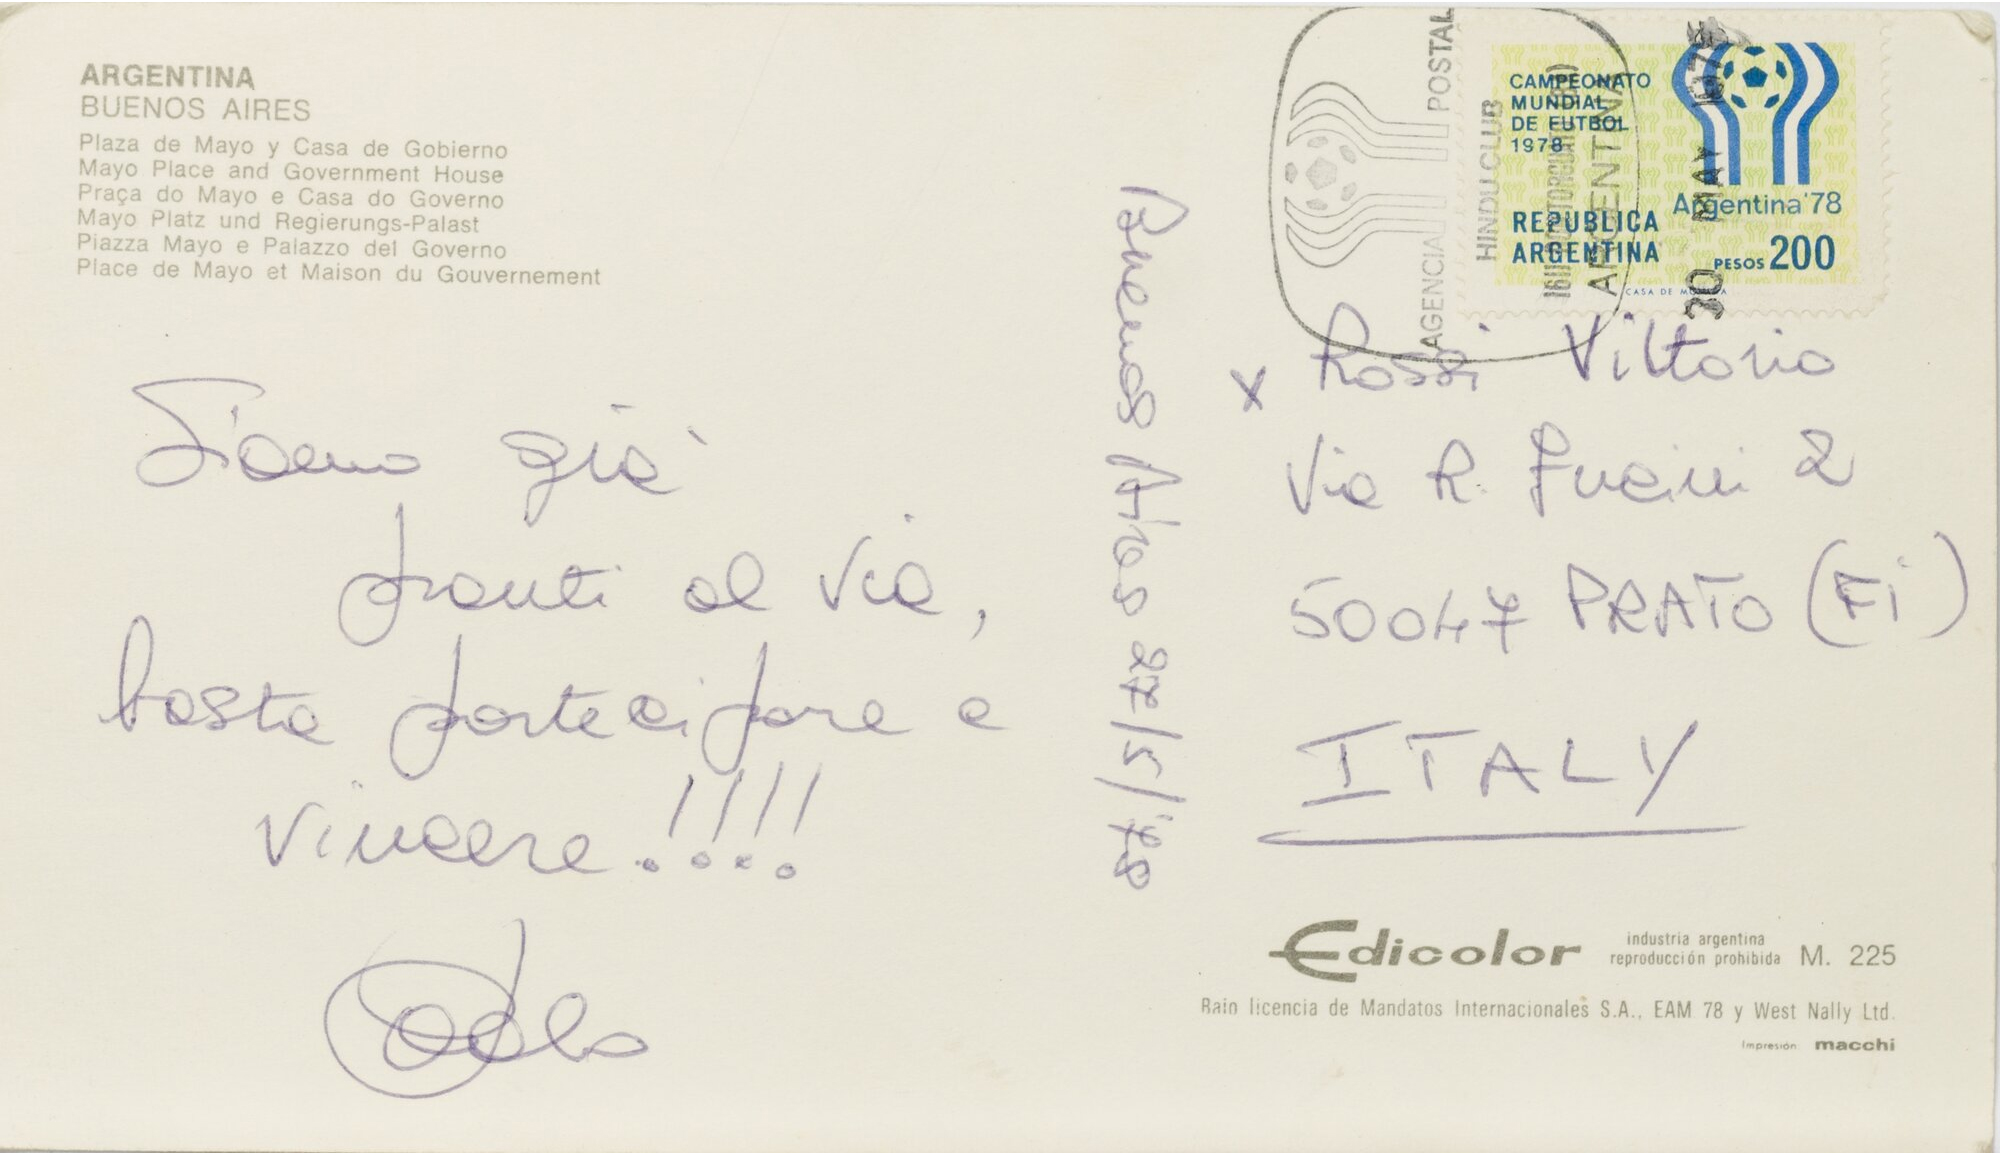 ARGENTINA
BUENOS AIRES
Plaza de Mayo y Casa de Gobierno
Mayo Place and Government House
Praça do Mayo e Casa do Governo
Mayo Platz und Regierungs-Palast
Piazza Mayo e Palazzo del Governo
Place de Mayo et Maison du Gouvernement
Siamo già
pronti al via,
basta partecipare e
vincere!!!!
Paolo
Buenos Aires 27/5/78
AGENCIA POSTAL
HINDU CLUB
ARGENTINA
30 MAY 1978
CAMPEONATO
MUNDIAL
DE FUTBOL
1978
Argentina '78
REPUBLICA
ARGENTINA
PESOS 200
CASA DE MONEDA
x Rossi Vittorio
Via R. Fucini 2
50047 PRATO (Fi)
ITALY
Edicolor
industria argentina
reproducción prohibida
M. 225
Bajo licencia de Mandatos Internacionales S.A., EAM 78 y West Nally Ltd.
Impresión macchi